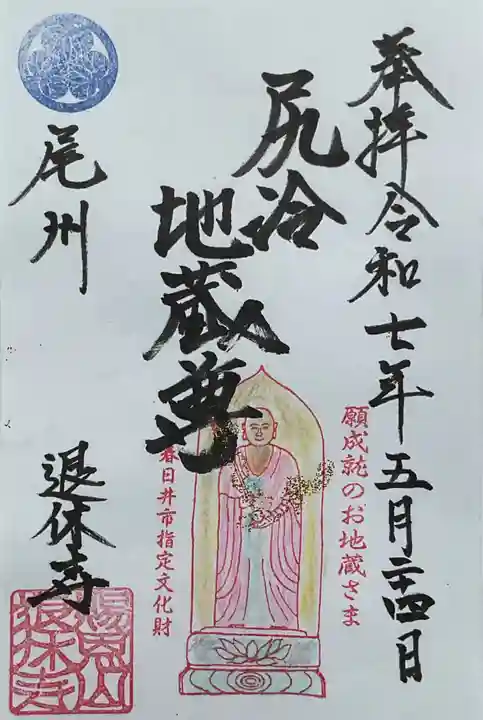 奉拝 令和七年五月二十四日
尻冷
地蔵尊
願成就のお地蔵さま
春日井市指定文化財
尾州
退休寺
陽谷山
退休寺